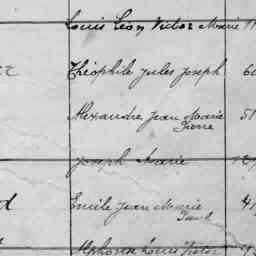 Louis Léon Victor Marie
Théophile Jules Joseph 60
Alexandre Jean Marie 51
Pierre
Joseph Marie
Emile Jean Marie 41
Paul
Alphonse Louis Victor